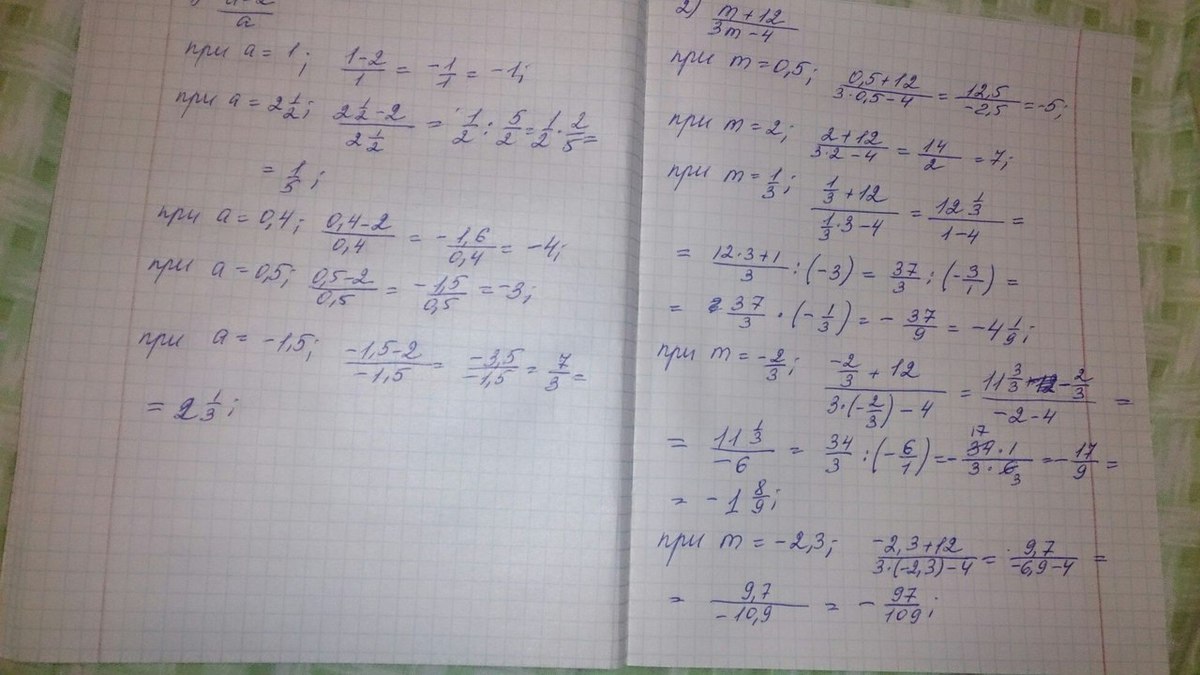 a-2/a
при a = 1; (1-2)/1 = -1/1 = -1;
при a = 2 1/2; (2 1/2 - 2)/(2 1/2) = 1/2 : 5/2 = 1/2 · 2/5 =
= 1/5;
при a = 0,4; (0,4-2)/0,4 = - 1,6/0,4 = -4;
при a = 0,5; (0,5-2)/0,5 = - 1,5/0,5 = -3;
при a = -1,5; (-1,5-2)/-1,5 = -3,5/-1,5 = 7/3 =
= 2 1/3;
2) (m+12)/(3m-4)
при m = 0,5; (0,5+12)/(3·0,5-4) = 12,5/-2,5 = -5;
при m = 2; (2+12)/(3·2-4) = 14/2 = 7;
при m = 1/3; (1/3 + 12)/(1/3·3-4) = (12 1/3)/(1-4) =
= (12·3+1)/3 : (-3) = 37/3 : (-3/1) =
= 37/3 · (-1/3) = - 37/9 = -4 1/9;
при m = -2/3; (-2/3 + 12)/(3·(-2/3)-4) = (11 3/3 - 2/3)/(-2-4) =
= (11 1/3)/-6 = 34/3 : (-6/1) = - (34 17 · 1)/(3 · 6 3) = - 17/9 =
= -1 8/9;
при m = -2,3; (-2,3+12)/(3·(-2,3)-4) = 9,7/(-6,9-4) =
= 9,7/-10,9 = - 97/109;